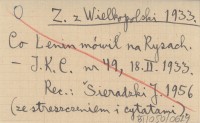 O Z. z Wielkopolski 1933.
Co Lenin mówił na Rysach.
– I.K.C. nr 49, 18.II.1933.
Rec.: Sieradzki J. 1956
(ze streszczeniem i cytatami)